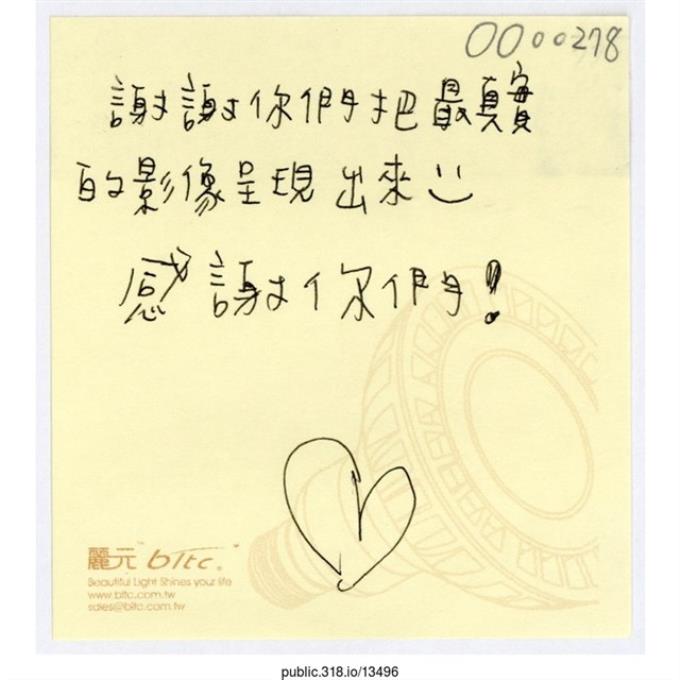 0000278
謝謝你們把最真實
的影像呈現出來 :)
感謝你們!
麗元™ bltc®
Beautiful Light Shines your life
www.bltc.com.tw
sales@bltc.com.tw
public.318.io/13496